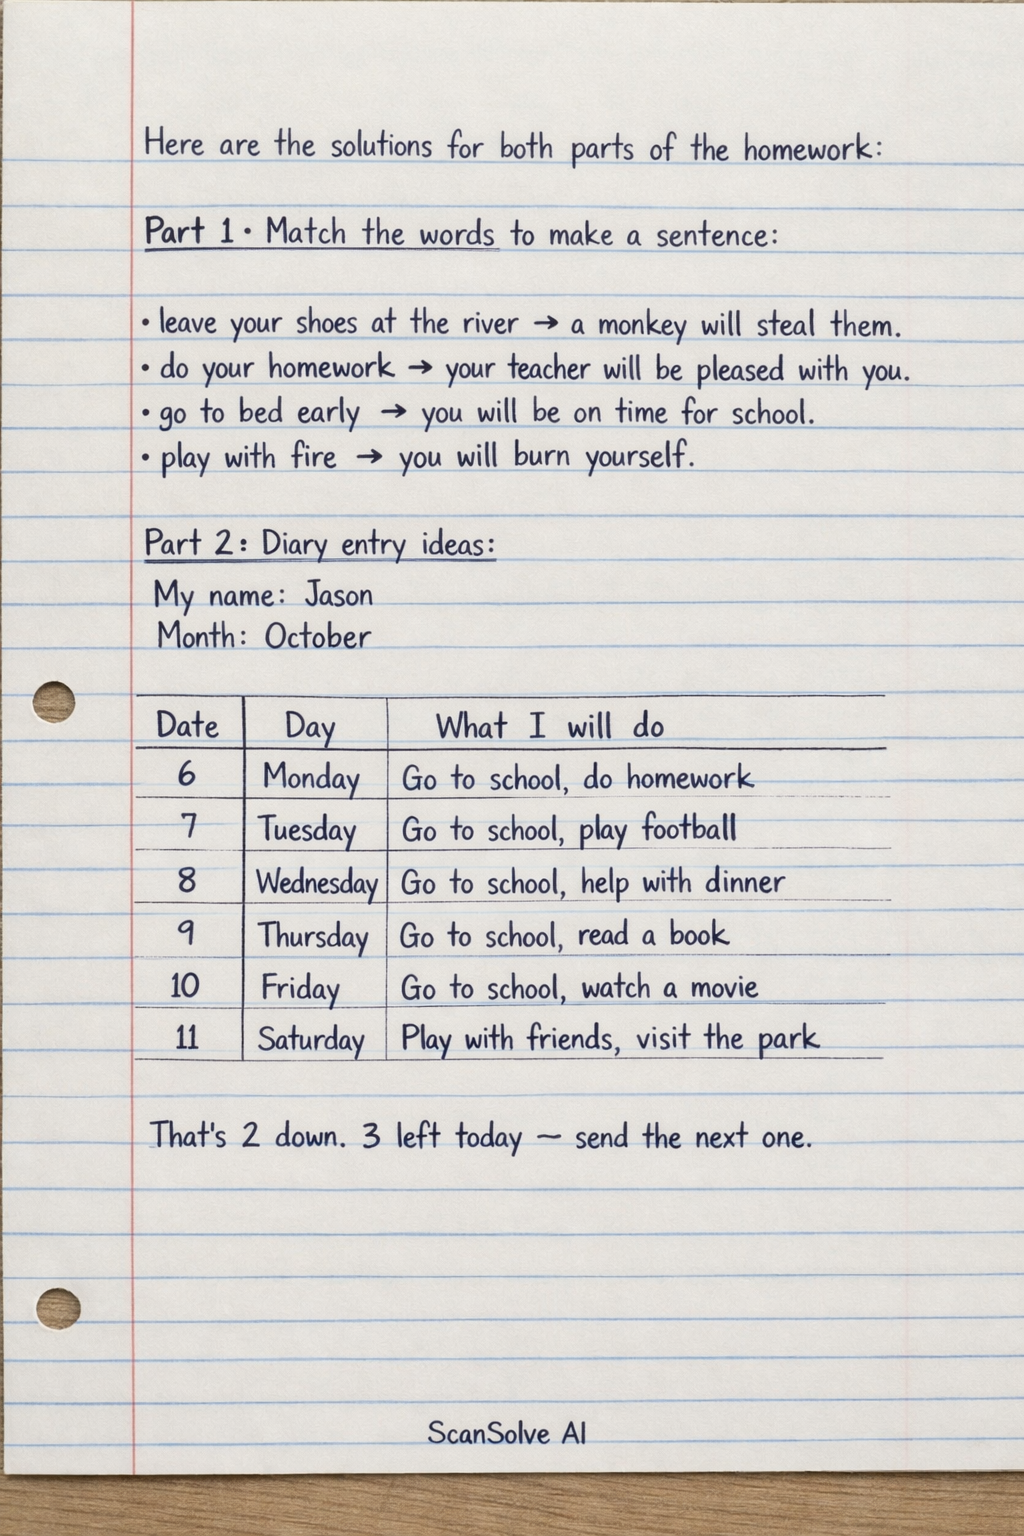 Here are the solutions for both parts of the homework:
Part 1 • Match the words to make a sentence:
• leave your shoes at the river → a monkey will steal them.
• do your homework → your teacher will be pleased with you.
• go to bed early → you will be on time for school.
• play with fire → you will burn yourself.
Part 2: Diary entry ideas:
My name: Jason
Month: October
Date Day What I will do
6 Monday Go to school, do homework
7 Tuesday Go to school, play football
8 Wednesday Go to school, help with dinner
9 Thursday Go to school, read a book
10 Friday Go to school, watch a movie
11 Saturday Play with friends, visit the park
That's 2 down. 3 left today — send the next one.
ScanSolve AI